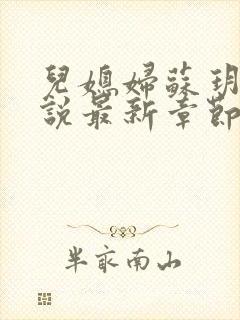 兒媳婦蘇玥
說最新章節
半畝南山